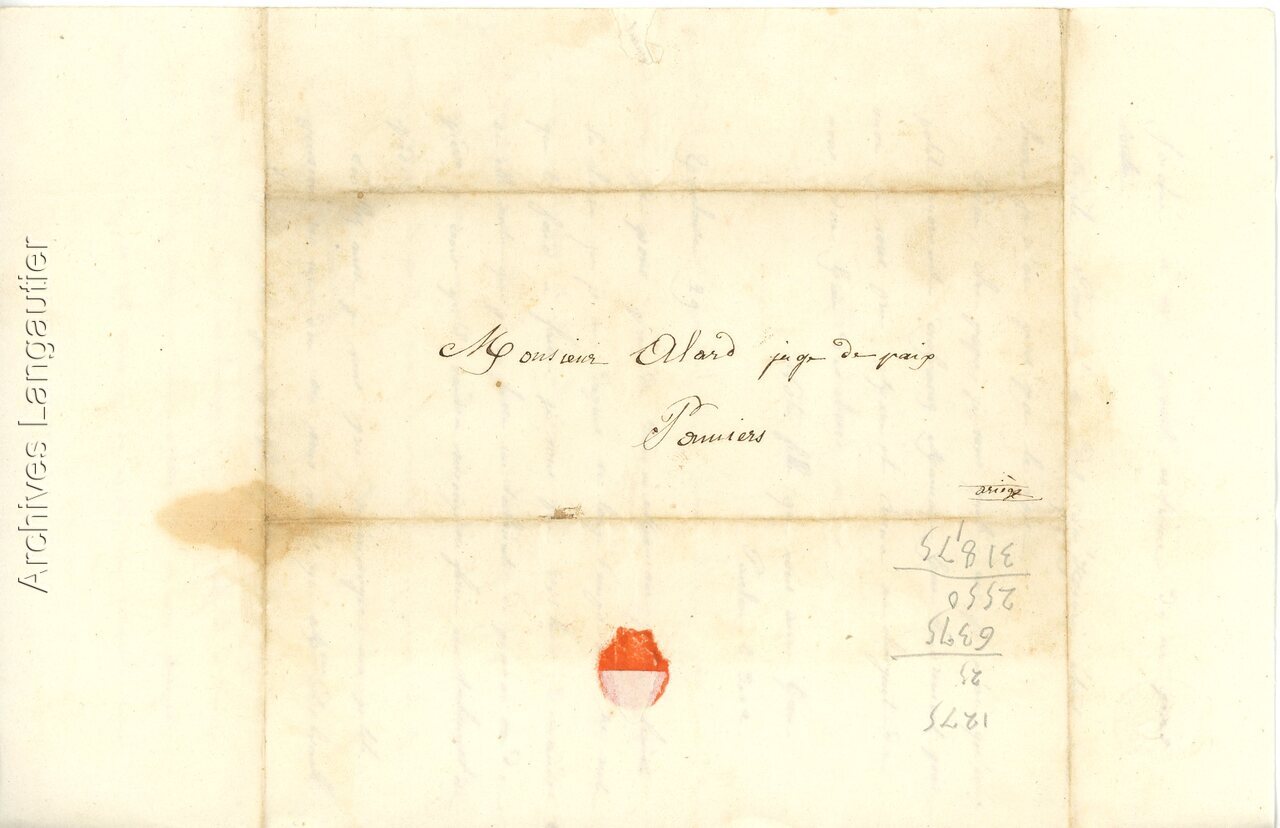 Archives Langautier
Monsieur Alard juge de paix
Pamiers
ariège
1275
25
6375
2550
318,75